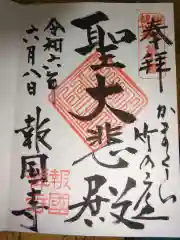 奉拝
かまくら
竹の庭
聖大悲殿
令和六年
六月八日
報国寺
報國